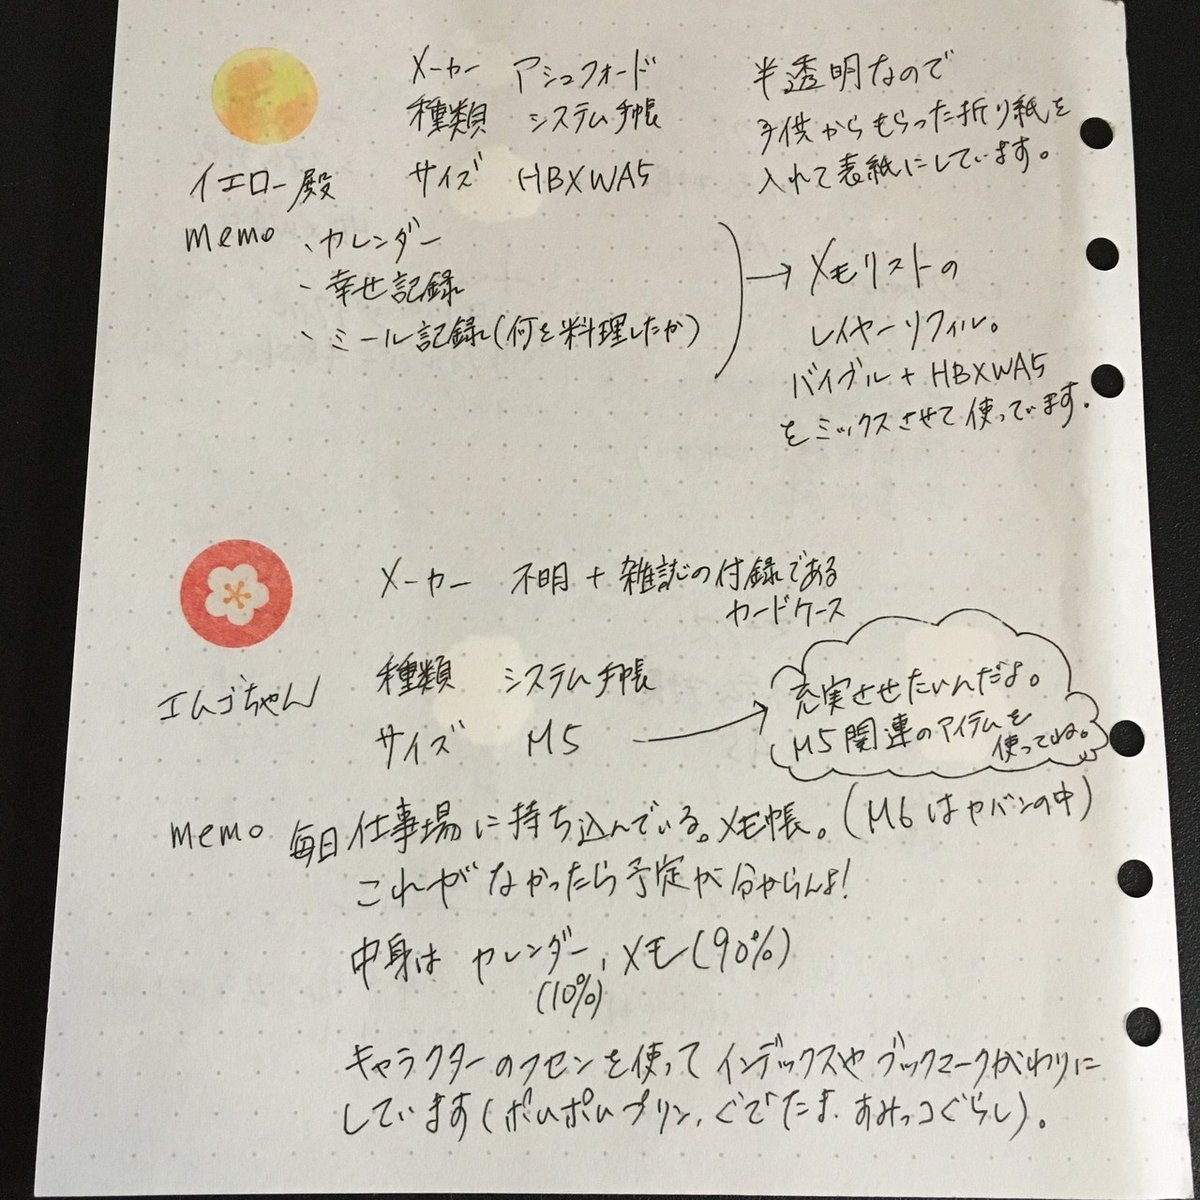 メーカー アシュフォード
種類 システム手帳
サイズ HBXWA5
イエロー殿
半透明なので
子供からもらった折り紙を
入れて表紙にしています。
memo
、カレンダー
、幸せ記録
、ミール記録(何を料理したか)
→ メモリストの
レイヤーリフィル。
バイブル + HBXWA5
をミックスさせて使っています。
メーカー 不明 + 雑誌の付録である
カードケース
エムゴちゃん
種類 システム手帳
サイズ M5 →
充実させたいんだよ。
M5関連のアイテムを
使ってね。
memo 毎日仕事場に持ち込んでいる。メモ帳。(M6はカバンの中)
これがなかったら予定が分からんよ!
中身は カレンダー、メモ(90%)
(10%)
キャラクターのフセンを使ってインデックスやブックマークがわりに
しています(ポムポムプリン、ぐでたま、すみっコぐらし)。